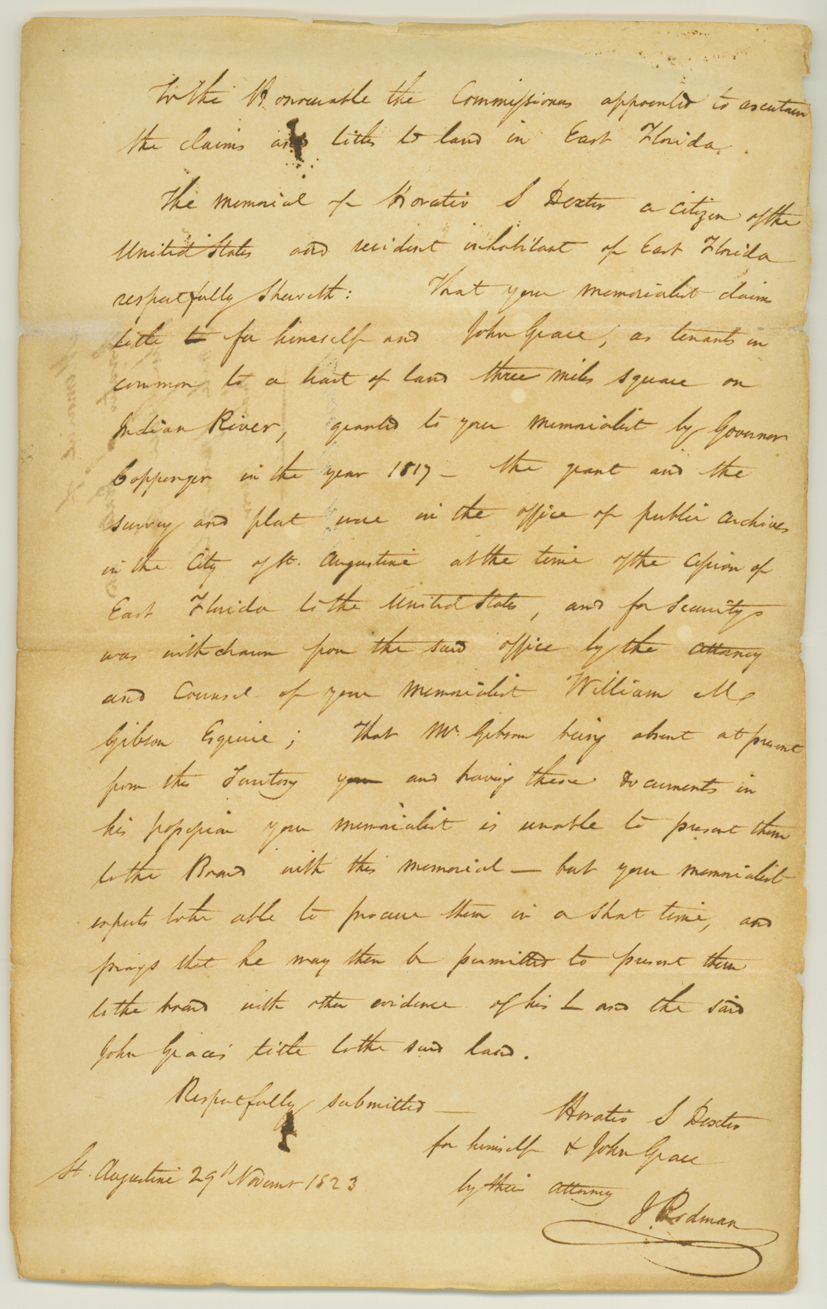 To the Honourable the Commissioners appointed to ascertain
the claims and titles to land in East Florida.
The memorial of Horatio S Dexter a citizen of the
United States and resident inhabitant of East Florida
respectfully sheweth: That your memorialist claims
title to for himself and John Grace, as tenants in
common to a tract of land three miles square on
Indian River, granted to your memorialist by Governor
Coppenger in the year 1817 — the grant and the
survey and plat were in the office of public archives
in the City of St. Augustine at the time of the cession of
East Florida to the United States, and for security
was withdrawn from the said office by the attorney
and Counsel of your memorialist William M
Gibson Esquire; That Mr Gibson being absent at present
from this Territory your and having these documents in
his possession your memorialist is unable to present them
to the Board with this memorial — but your memorialist
expects to be able to procure them in a short time, and
prays that he may then be permitted to present them
to the board with other evidence of his and the said
John Grace's title to the said land.
Respectfully submitted —
Horatio S Dexter
for himself & John Grace
by their attorney
J. Rodman
St. Augustine 29th Novemr 1823